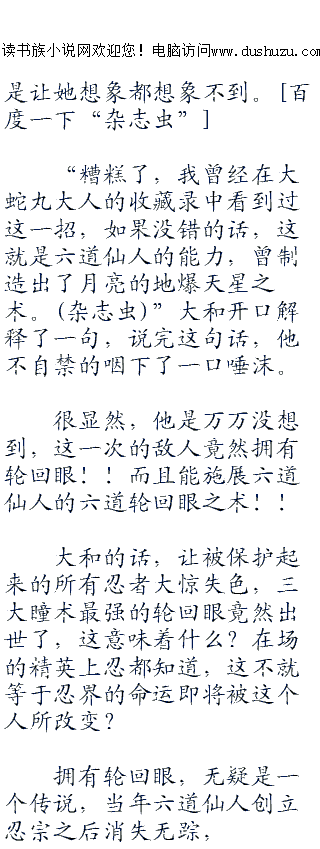 读书族小说网欢迎您！电脑访问www.dushuzu.com
是让她想象都想象不到。[百
度一下“杂志虫”]
“糟糕了，我曾经在大
蛇丸大人的收藏录中看到过
这一招，如果没错的话，这
就是六道仙人的能力，曾制
造出了月亮的地爆天星之
术。(杂志虫)”大和开口解
释了一句，说完这句话，他
不自禁的咽下了一口唾沫。
很显然，他是万万没想
到，这一次的敌人竟然拥有
轮回眼！！而且能施展六道
仙人的六道轮回眼之术！！
大和的话，让被保护起
来的所有忍者大惊失色，三
大瞳术最强的轮回眼竟然出
世了，这意味着什么？在场
的精英上忍都知道，这不就
等于忍界的命运即将被这个
人所改变？
拥有轮回眼，无疑是一
个传说，当年六道仙人创立
忍宗之后消失无踪，